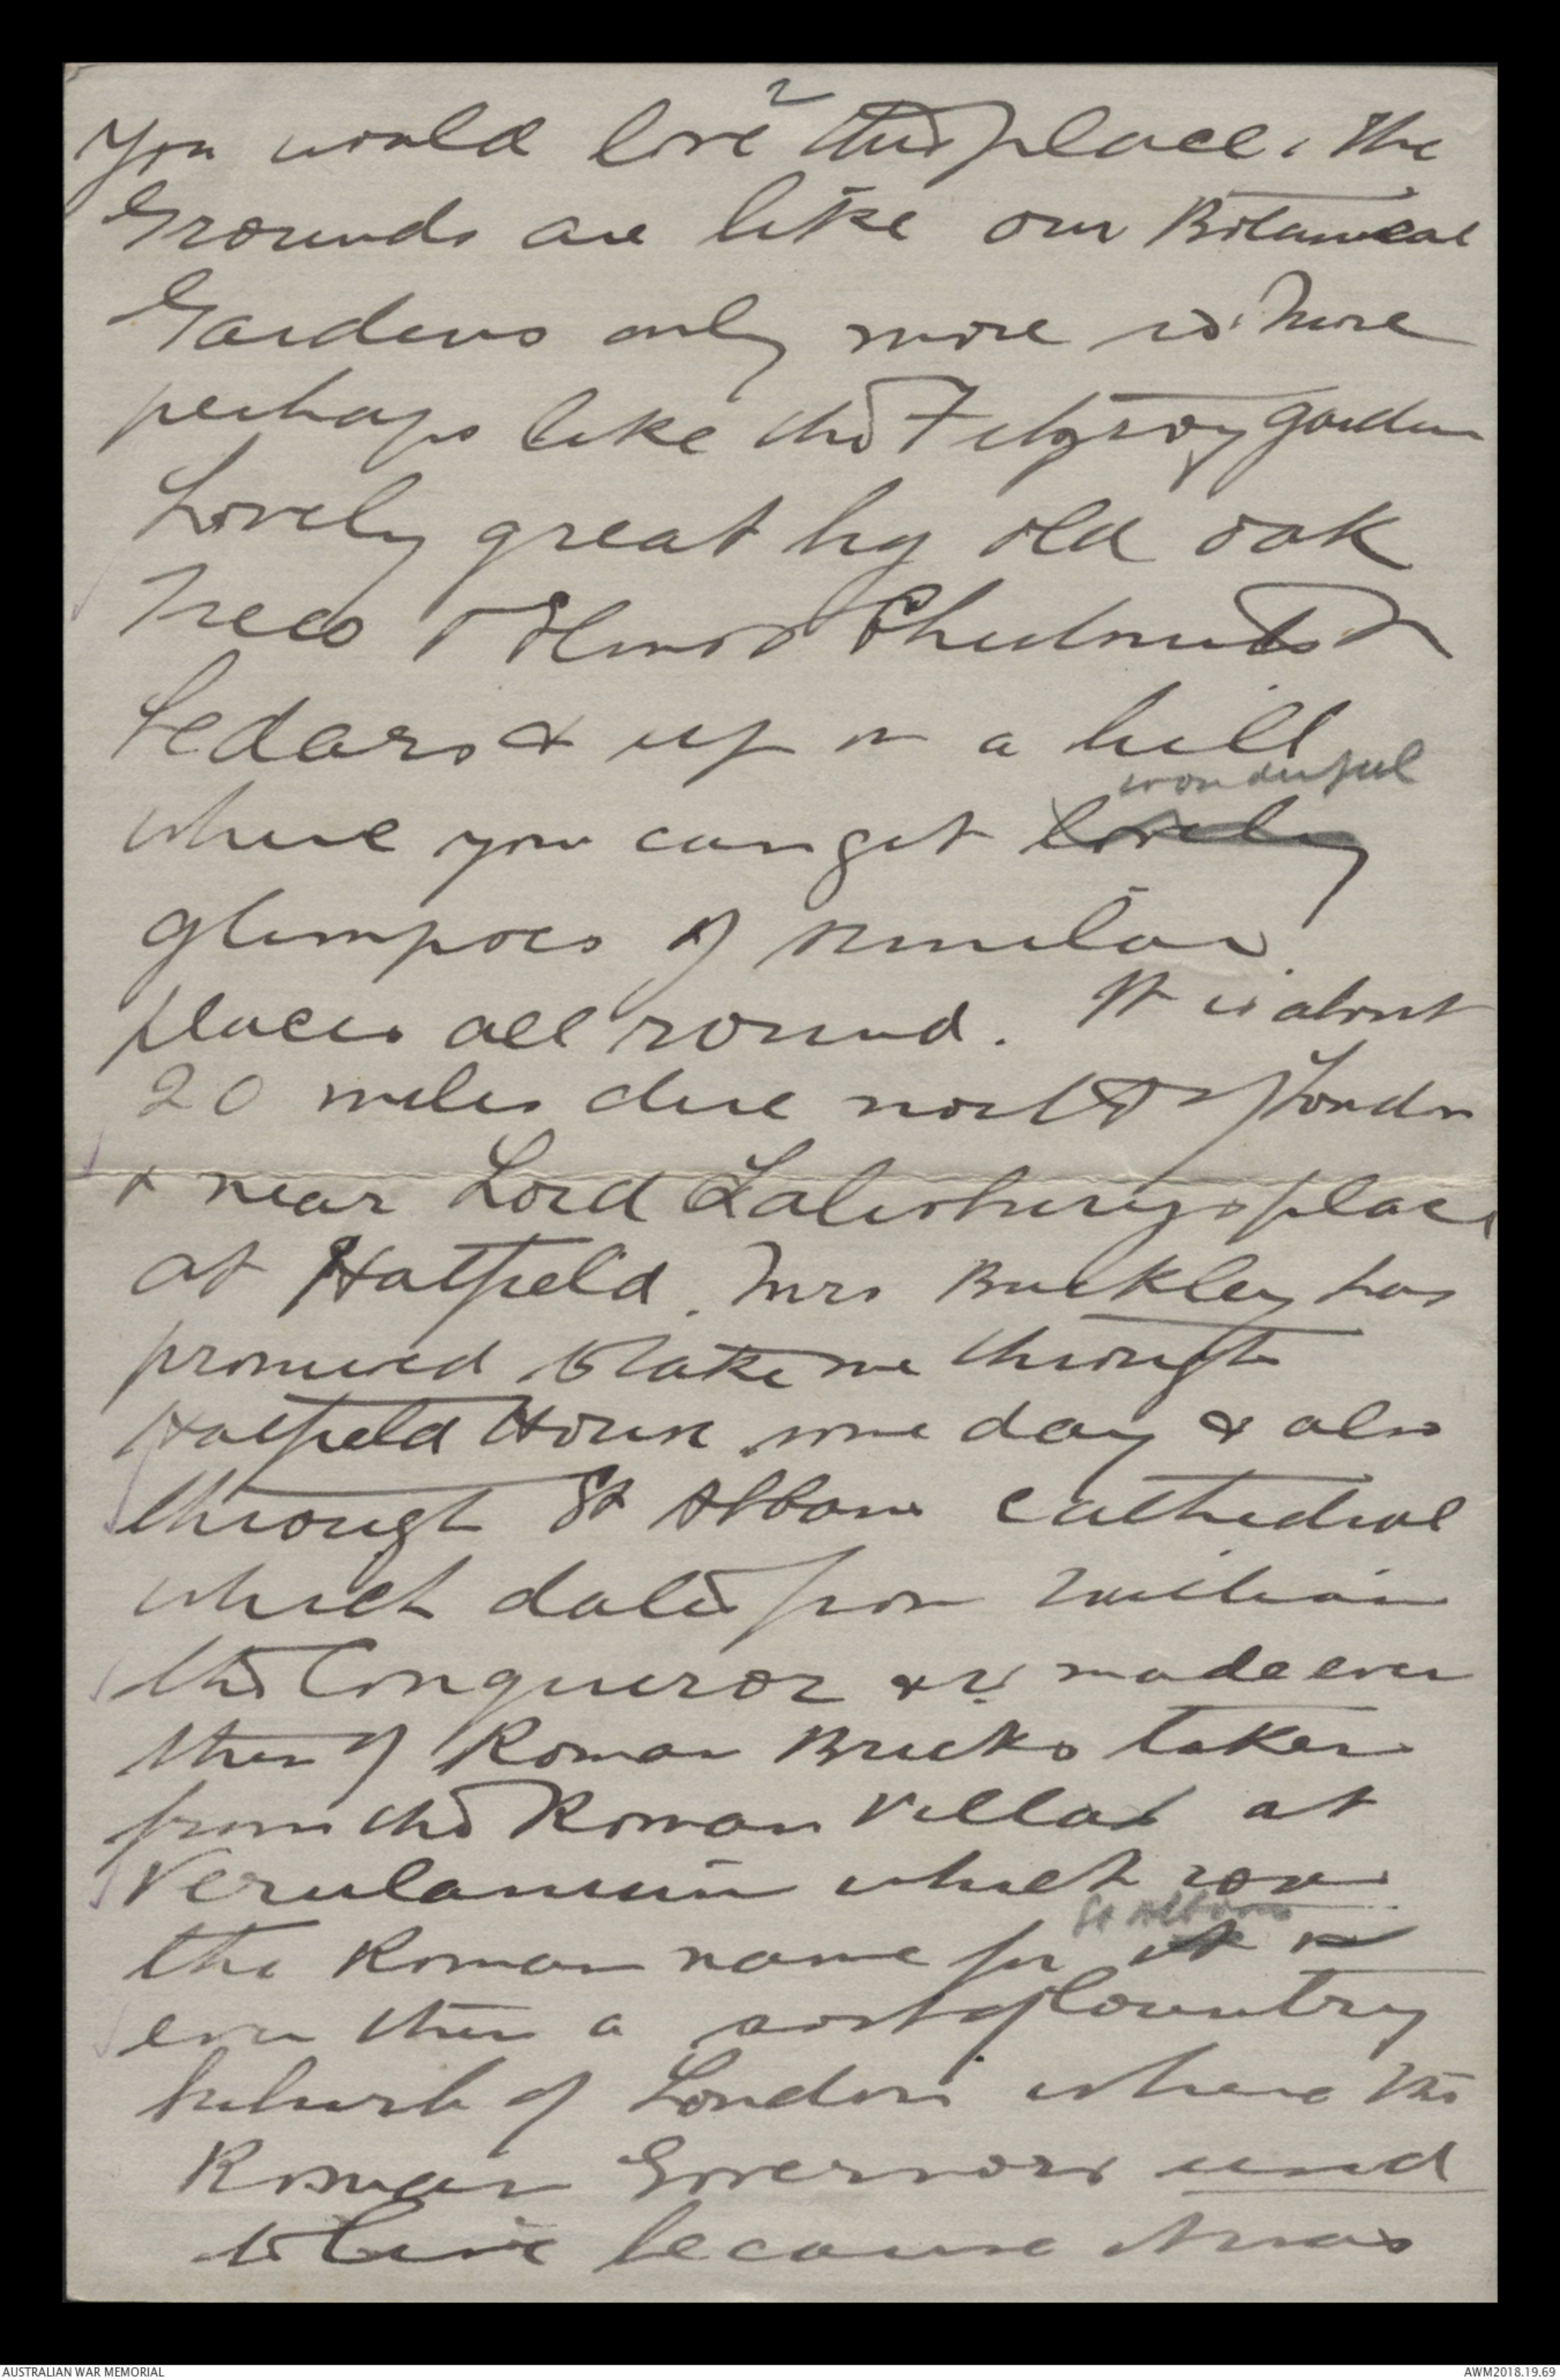 2
You would love this place. The
Grounds are like our Botanical
Gardens only more so. More
perhaps like the Fitzroy garden
Lovely great big old oak
Trees & Elms & Chestnuts &
Cedars & up on a hill
wonderful
where you can get lovely
glimpses of similar
places all round. It is about
20 miles due north of London
& near Lord Salisburys place
at Hatfield. Mrs Buckley has
promised to take me through
Hatfield House some day & also
through St Albans Cathedral
which dates from William
the Conqueror & is made even
then of Roman Bricks taken
from the Roman Villas at
Verulamium which was
St Albans
the Roman name for it
even then a sort of Country
suburb of London where the
Roman Governors used
to live because it was
AUSTRALIAN WAR MEMORIAL
AWM2018.19.69